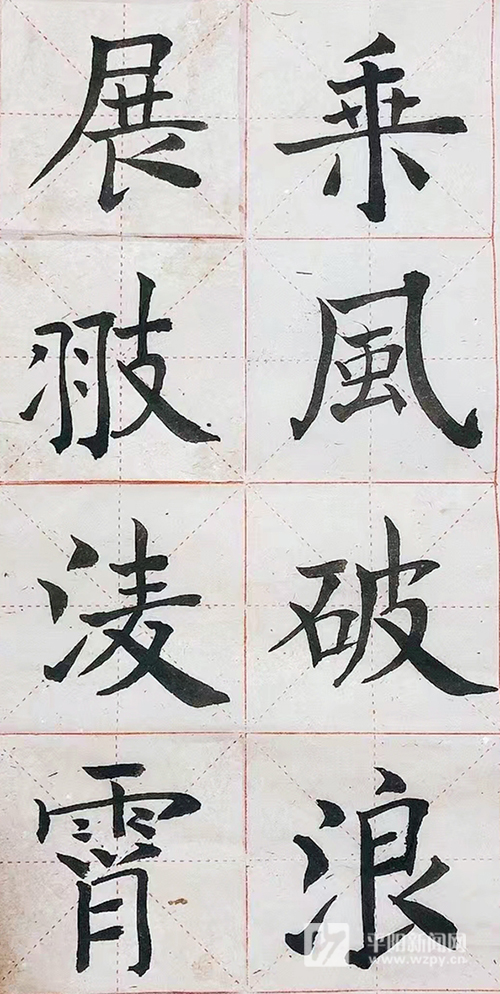 乘風破浪
展翅凌霄
平阳新闻网
www.wzpy.cn